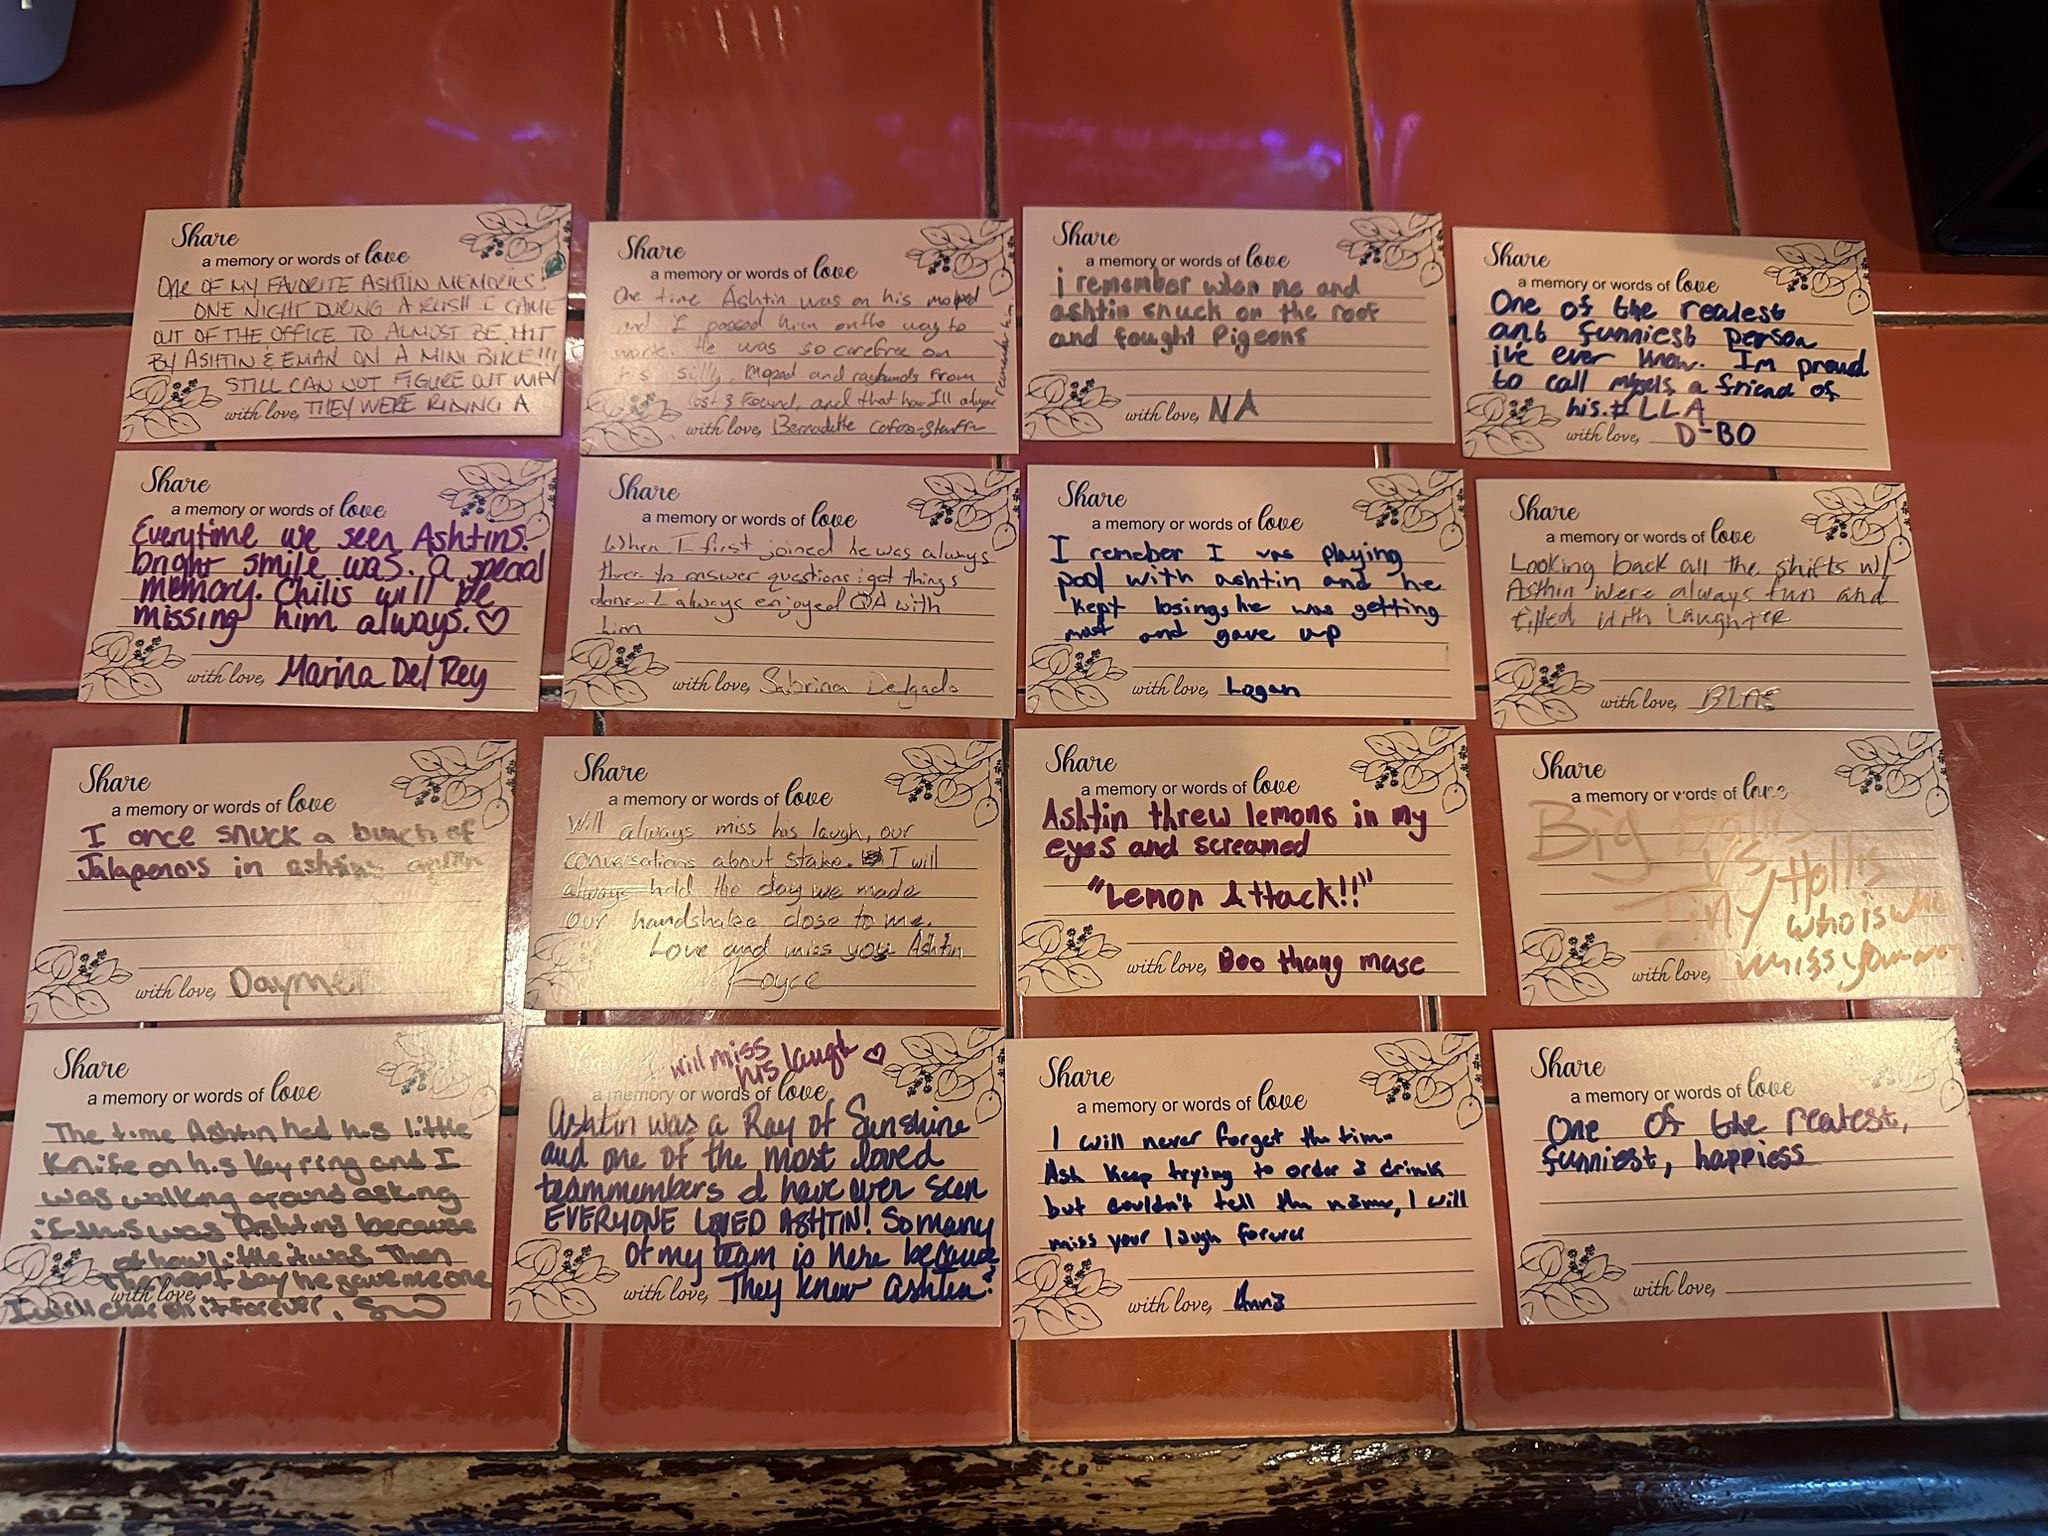 Share
a memory or words of love
ONE OF MY FAVORITE ASHTIN MEMORIES!
ONE NIGHT DURING A RUSH I CAME
OUT OF THE OFFICE TO ALMOST BE HIT
BY ASHTIN & EMAN ON A MINI BIKE!!!
STILL CAN NOT FIGURE OUT WHY
with love, THEY WERE RIDING A
Share
a memory or words of love
One time Ashtin was on his moped
and I passed him on the way to
work. He was so carefree on
his silly moped and raybands from
lost & found, and that how I'll always
remember him.
with love, Bernadette
Share
a memory or words of love
i remember when me and
ashtin snuck on the roof
and fought Pigeons
with love, NA
Share
a memory or words of love
One of the realest
ant funniest person
i've ever know. I'm proud
to call myself a friend of
his. #LLA
with love, D-BO
Share
a memory or words of love
Everytime we seen Ashtins.
bright smile was. a special
memory. Chilis will be
missing him always. ♡
with love, Marina Del Rey
Share
a memory or words of love
When I first joined he was always
there to answer questions & get things
done. I always enjoyed QA with
him
with love, Sabrina Delgado
Share
a memory or words of love
I remeber I was playing
pool with ashtin and he
kept losing, he was getting
and gave up
with love, Logan
Share
a memory or words of love
Looking back all the shifts w/
Ashtin were always fun and
filled with Laughter
with love,
Share
a memory or words of love
I once snuck a bunch of
Jalapeno's in ashtin's
with love, Daymen
Share
a memory or words of love
Will always miss his laugh, our
conversations about stake. I will
always hold the day we made
our handshake close to me.
Love and miss you Ashtin
Share
a memory or words of love
Ashtin threw lemons in my
eyes and screamed
"Lemon Attack!!"
with love, Boo thang mase
Share
a memory or words of love
Big Hollis
vs
Tiny Hollis
who is who
miss you
with love,
Share
a memory or words of love
The time Ashtin had his little
Knife on his key ring and I
was walking around asking
if this was Ashtins because
of how little it was. Then
The next day he gave me one
with love,
I will cherish it forever,
I will miss
his laugh ♡
a memory or words of love
Ashtin was a Ray of Sunshine
and one of the most loved
teammembers I have ever seen
EVERYONE LOVED ASHTIN! So many
of my team is here because
with love, They knew Ashtin!
Share
a memory or words of love
I will never forget the time
Ash keep trying to order a drink
but couldn't tell the name, I will
miss your laugh forever
with love, Anna
Share
a memory or words of love
One of the realest,
funniest, happiess
with love,